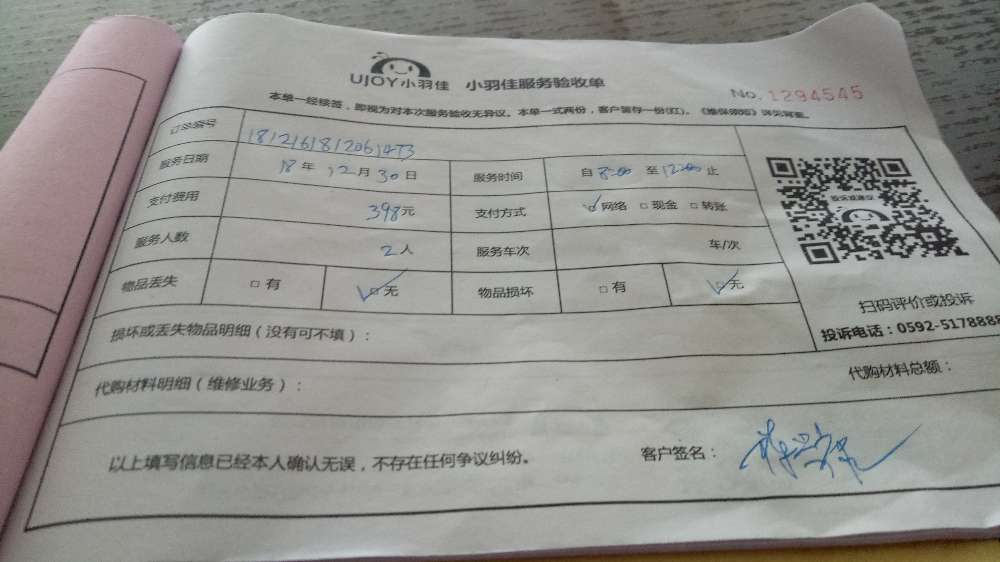 UJOY小羽佳 小羽佳服务验收单
No. 1294545
本单一经续签，即视为对本次服务验收无异议。本单一式两份，客户留存一份(红)。《维保须知》详见背面。
订单编号 1812161812061473
服务日期 18年 12月 30日 服务时间 自 8:00 至 12:00 止
支付费用 398元 支付方式 ☑网络 □现金 □转账
服务人数 2人 服务车次 车/次
物品丢失 □有 ☑无 物品损坏 □有 ☑无
投诉或建议
扫码评价或投诉
投诉电话：0592-5178888
损坏或丢失物品明细（没有可不填）：
代购材料明细（维修业务）： 代购材料总额：
以上填写信息已经本人确认无误，不存在任何争议纠纷。 客户签名：